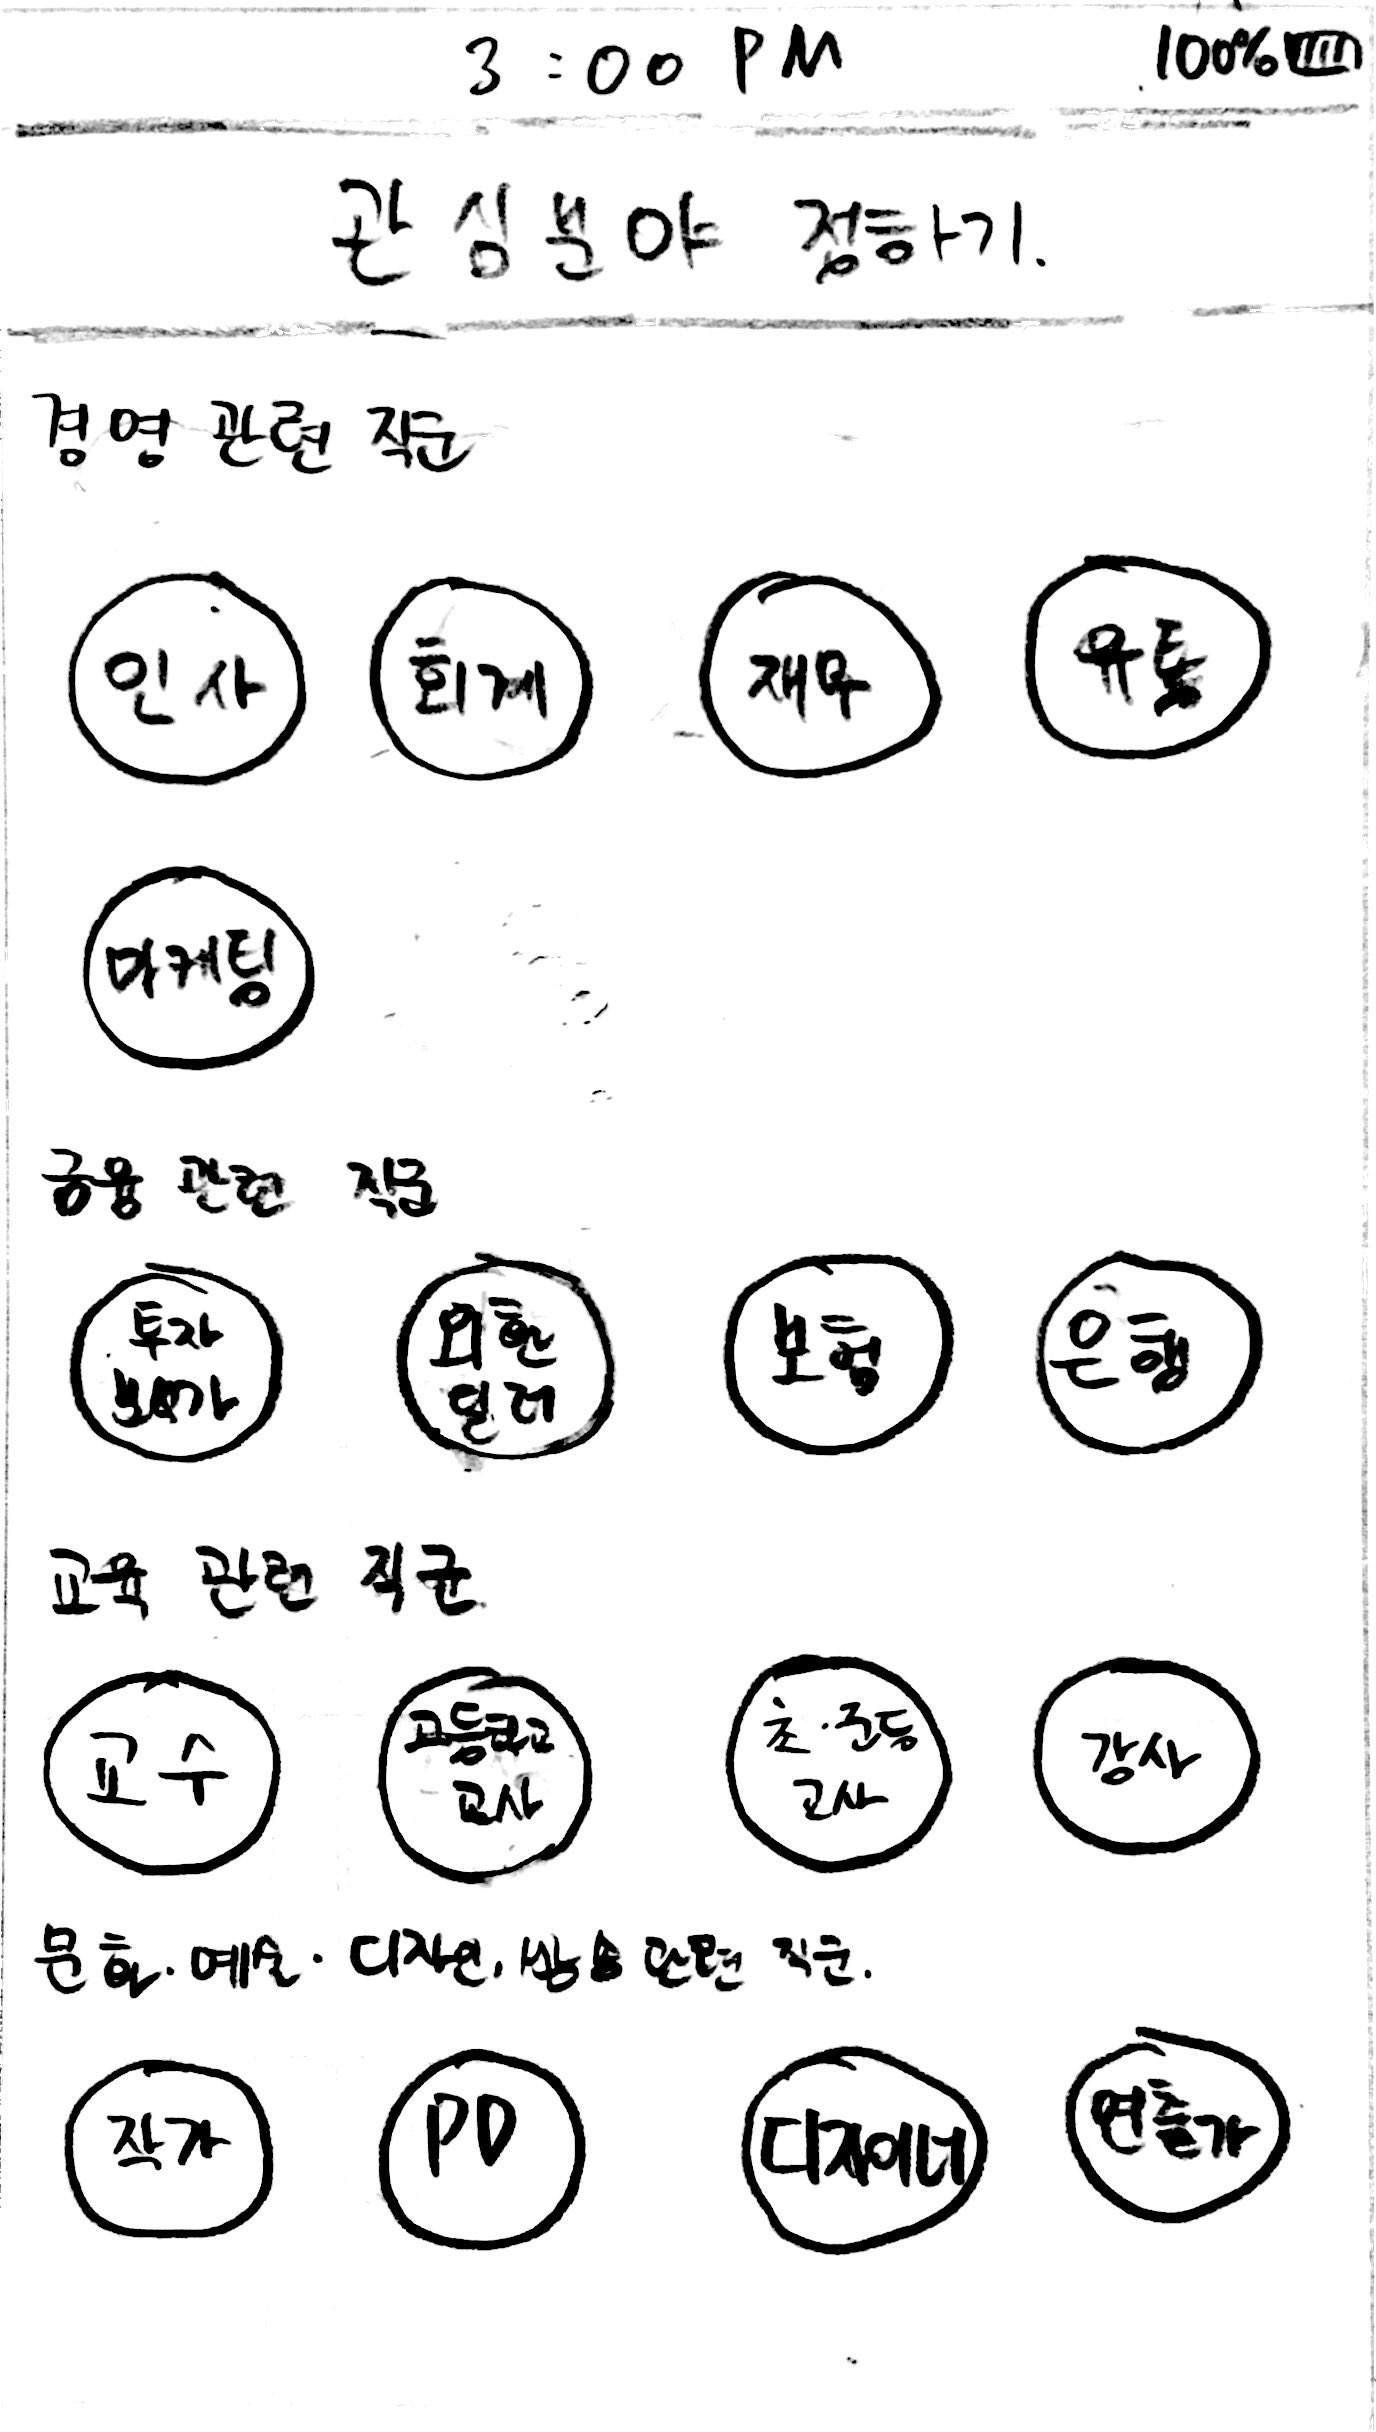 3:00 PM 100%
관심분야 정하기.
경영 관련 직군
인사 회계 재무 유통
마케팅
금융 관련 직군
투자 분석가 외환 딜러 보험 은행
교육 관련 직군
교수 고등학교 교사 초·중등 교사 강사
문화·예술·디자인, 방송 관련 직군.
작가 PD 디자이너 연출가